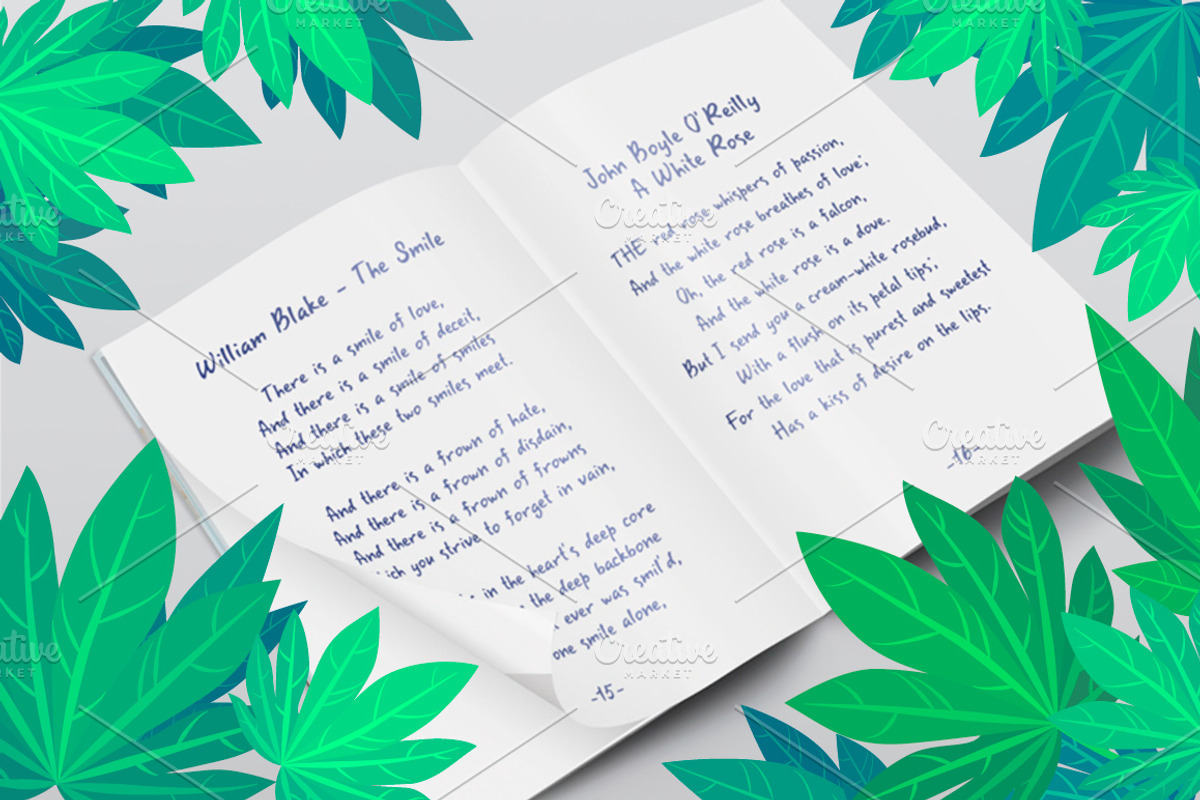 William Blake - The Smile
There is a smile of love,
And there is a smile of deceit,
And there is a smile of smiles
In which these two smiles meet.
And there is a frown of hate,
And there is a frown of disdain,
And there is a frown of frowns
you strive to forget in vain,
in the heart's deep core
the deep backbone
ever was smil'd,
one smile alone,
-15-
John Boyle O'Reilly
A White Rose
THE red rose whispers of passion,
And the white rose breathes of love;
Oh, the red rose is a falcon,
And the white rose is a dove.
But I send you a cream-white rosebud,
With a flush on its petal lips;
For the love that is purest and sweetest
Has a kiss of desire on the lips.
-16-
Creative
MARKET
Creative
MARKET
Creative
MARKET
Creative
MARKET
Creative
MARKET
Creative
MARKET